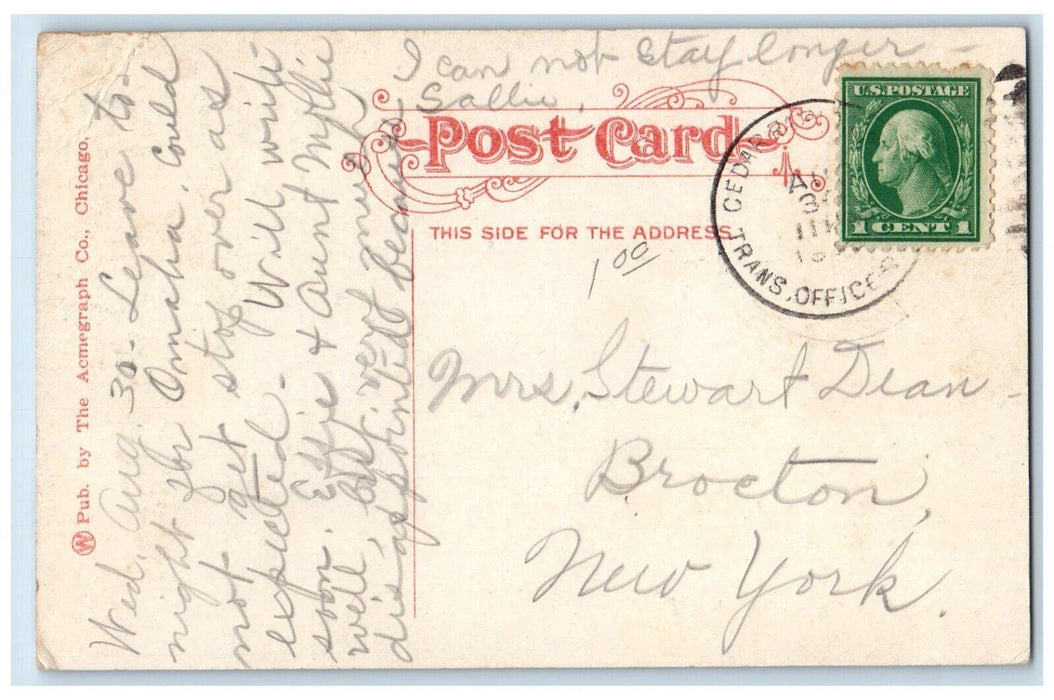 Wed, Aug. 30 - Leave to-
night for Omaha. Could
not get stop over as
expected - Will write
soon. Effie & Aunt Mollie
well, but very much
disappointed because
I can not stay longer -
Sallie,
Post Card
THIS SIDE FOR THE ADDRESS
1 00
Mrs. Stewart Dean -
Brocton,
New York.
U.S. POSTAGE
1 CENT 1
CEDAR R
TRANS. OFFICE
W Pub. by The Acmegraph Co., Chicago.